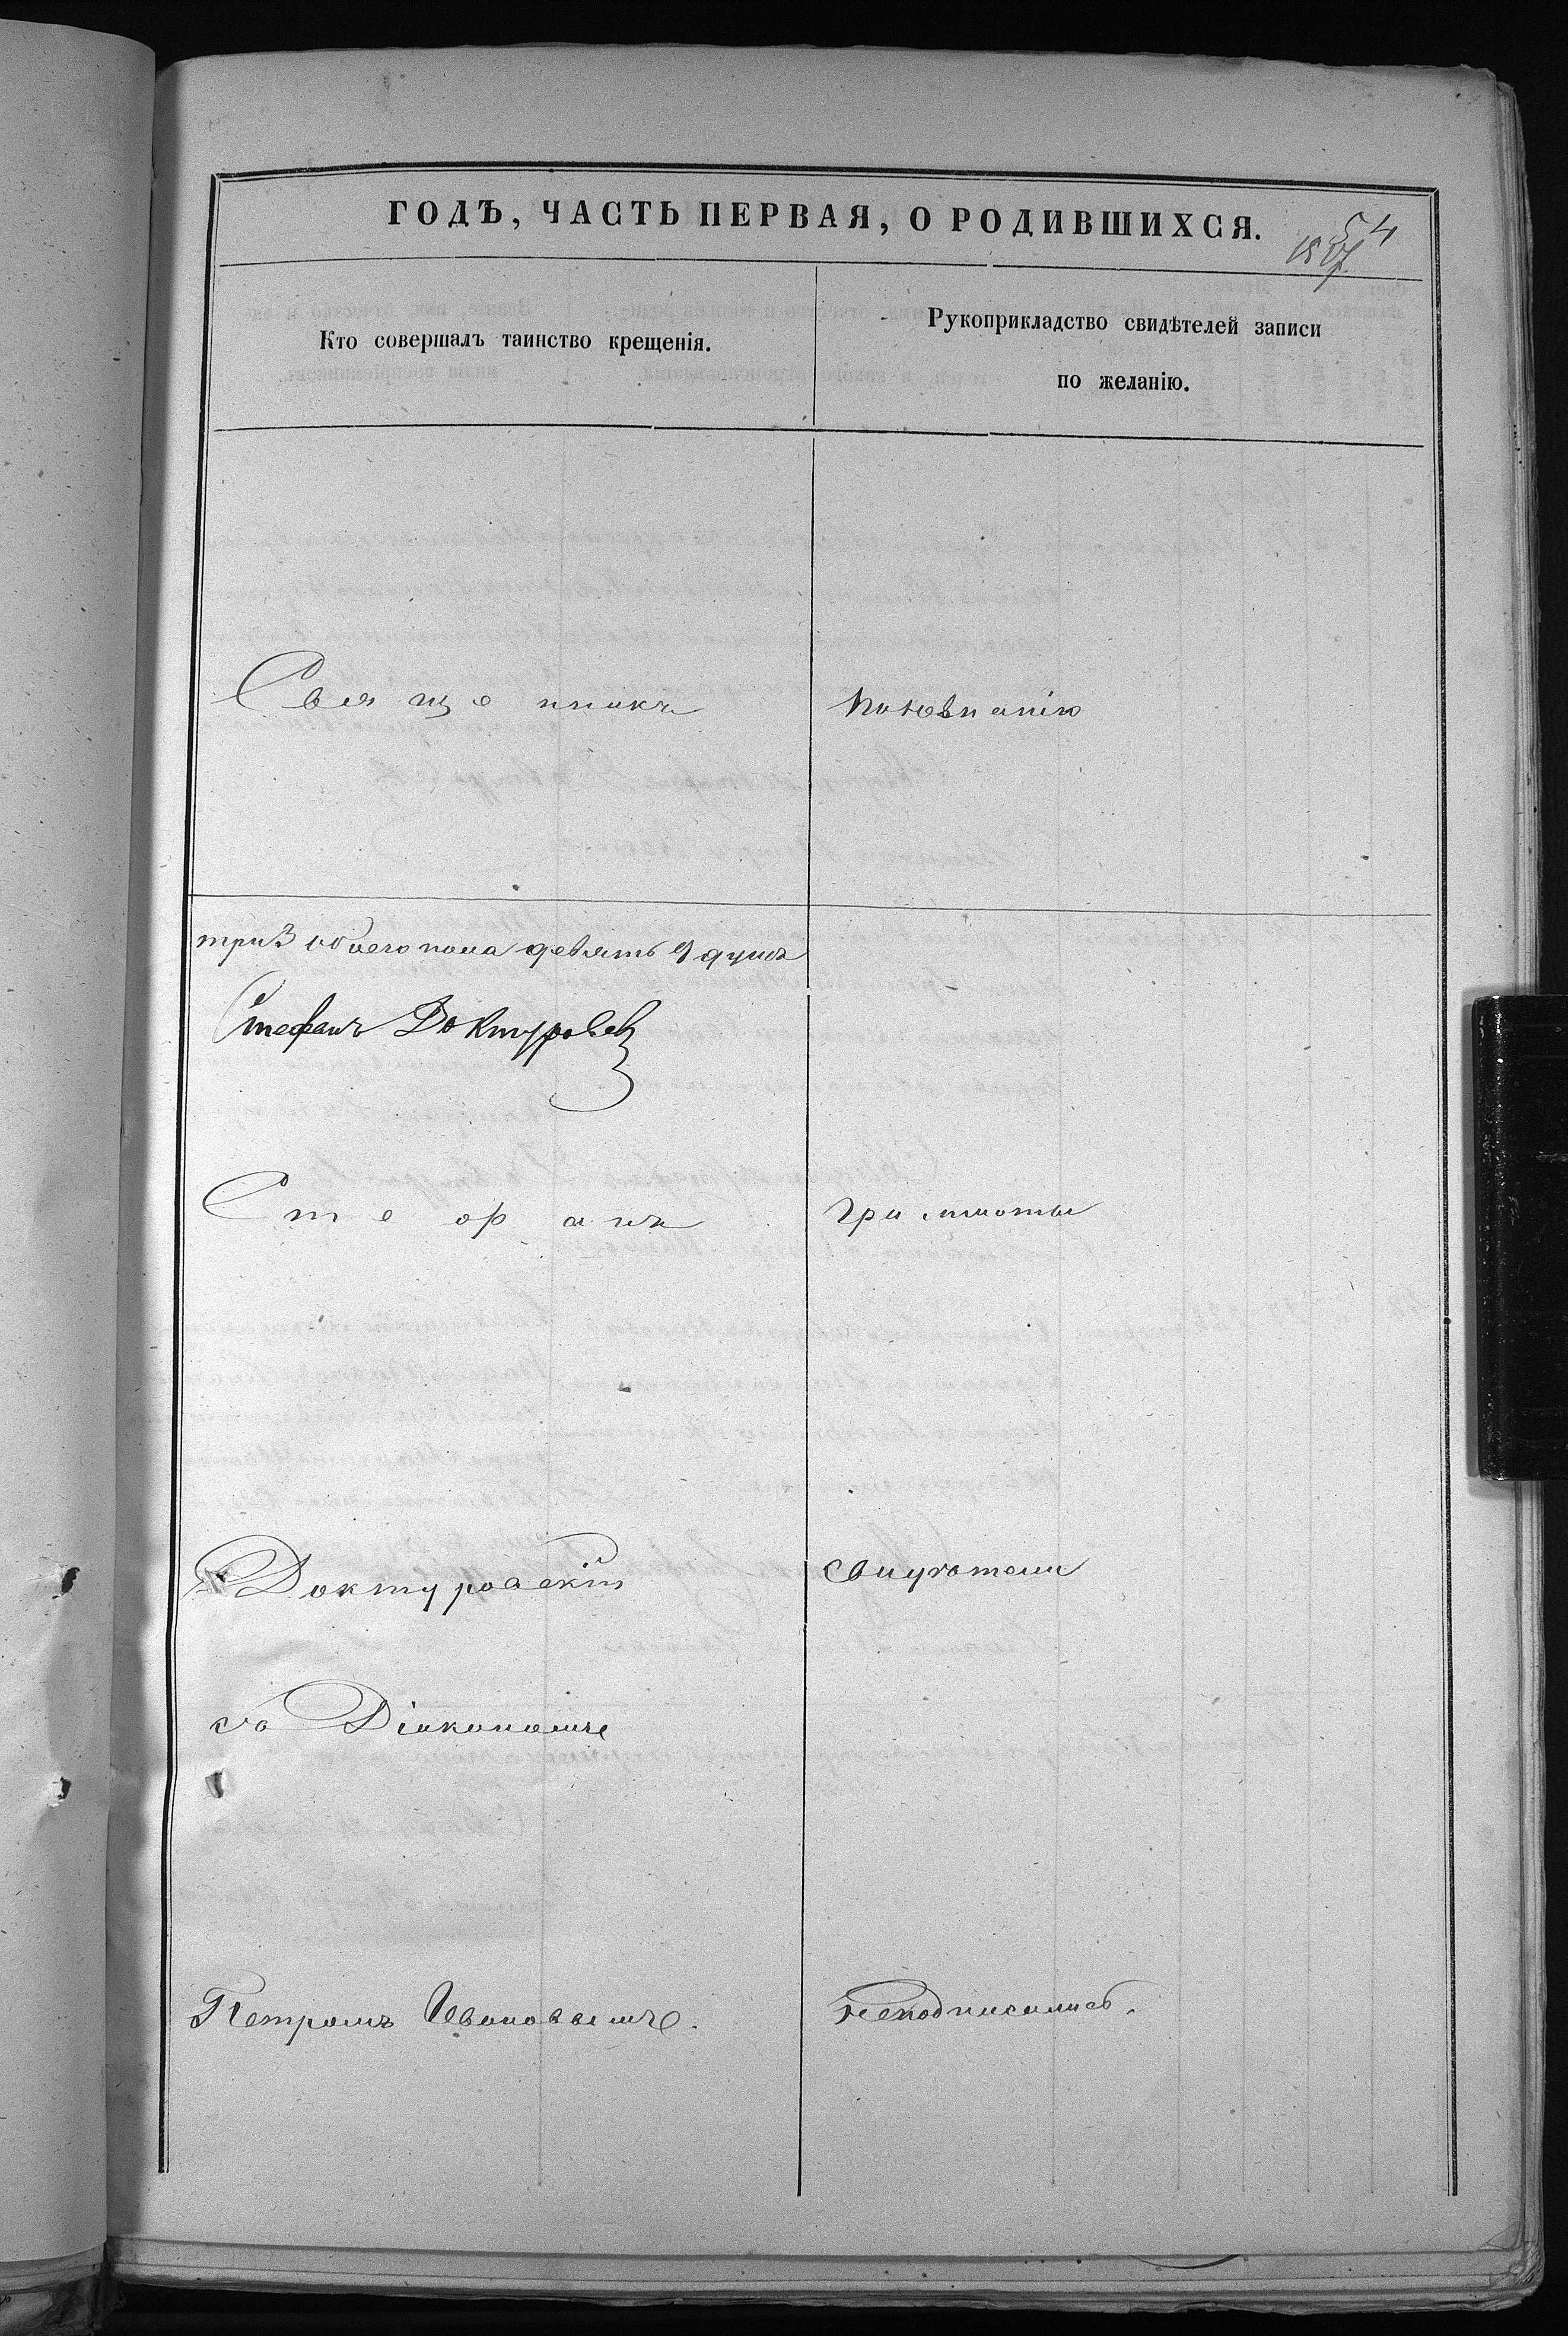 ГОДЪ, ЧАСТЬ ПЕРВАЯ, О РОДИВШИХСЯ.
54
Кто совершалъ таинство крещенія.
Рукоприкладство свидѣтелей записи
по желанію.
Священникъ
По незнанію
три 3 обоего пола девять 9 душъ
Стефанъ Доктуровск
Стефанъ
грамоты
Доктуровскій
свидѣтели
съ Діакономъ
Петромъ Ивановымъ.
неподписались.